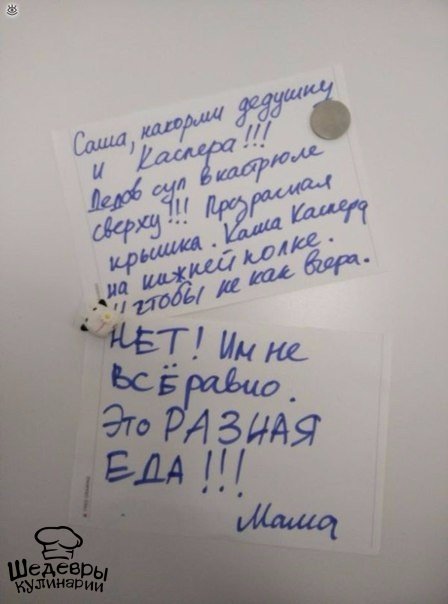 Саша, накорми дедушку
и Каспера!!!
Дедов суп в кастрюле
сверху!!! Прозрачная
крышка. Каша Каспера
на нижней полке.
И чтобы не как вчера.
НЕТ! Им не
ВСЁ равно.
Это РАЗНАЯ
ЕДА!!!
Мама
Шедевры
кулинарии